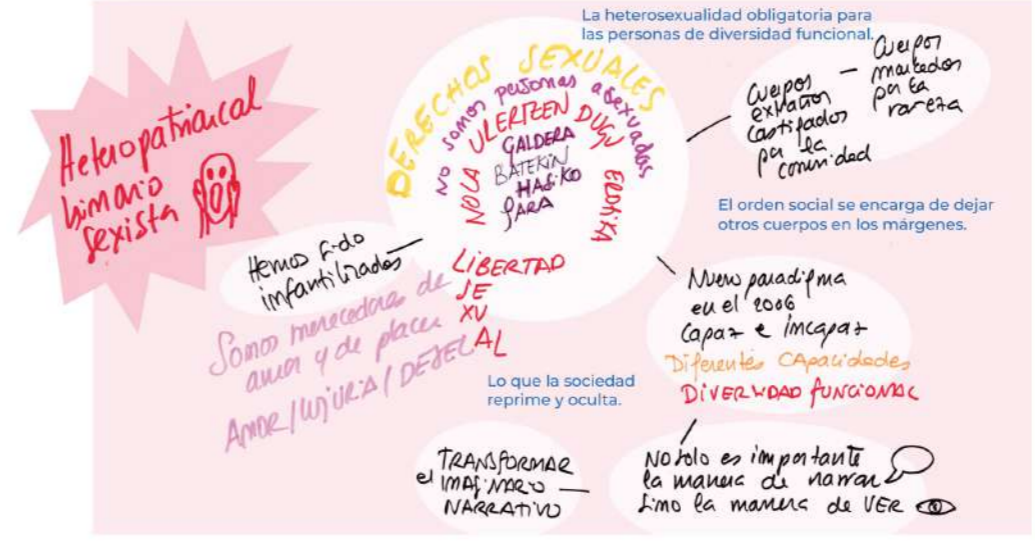 La heterosexualidad obligatoria para
las personas de diversidad funcional.
Heteropatriarcal
binario
sexista
DERECHOS SEXUALES
No somos personas asexuadas
NOLA ULERTZEN DUGU EROTIKA
GALDERA
BATEKIN
HASIKO
GARA
Cuerpos
extraños
castigados
por la
comunidad
— Cuerpos
marcados
por la
rareza
El orden social se encarga de dejar
otros cuerpos en los márgenes.
Hemos sido
infantilizados
LIBERTAD
SE
XU
AL
Somos merecedoras de
amor y de placer
AMOR/LUJURIA/DESEO
Nuevo paradigma
en el 2006
Capaz e incapaz
Diferentes CApacidades
DIVERSIDAD FUNCIONAL
Lo que la sociedad
reprime y oculta.
TRANSFORMAR
el IMAGINARIO
NARRATIVO
No solo es importante
la manera de narrar
sino la manera de VER